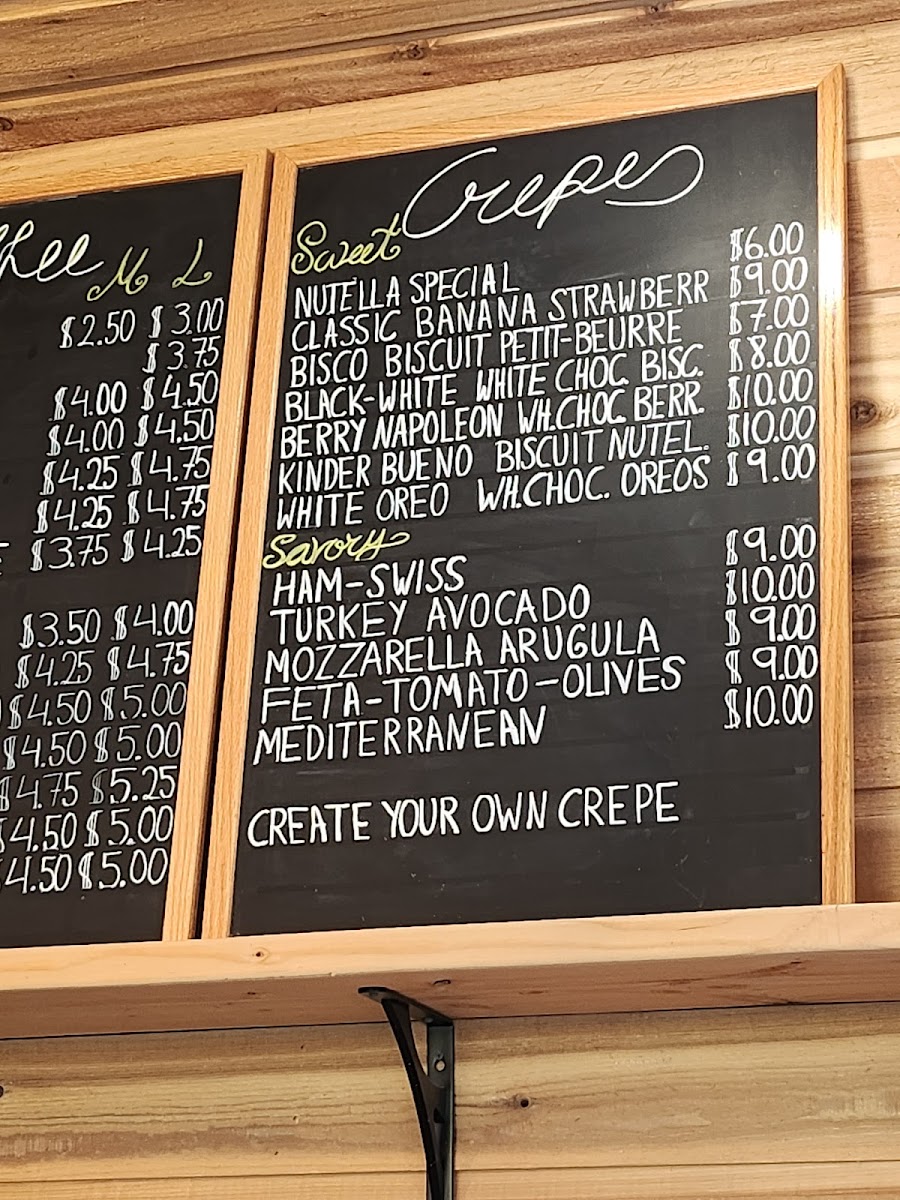 ffee M L
$2.50 $3.00
$3.75
$4.00 $4.50
$4.00 $4.50
$4.25 $4.75
$4.25 $4.75
$3.75 $4.25
$3.50 $4.00
$4.25 $4.75
$4.50 $5.00
$4.50 $5.00
$4.75 $5.25
$4.50 $5.00
4.50 $5.00
Crepes
Sweet
NUTELLA SPECIAL $6.00
CLASSIC BANANA STRAWBERR $9.00
BISCO BISCUIT PETIT-BEURRE $7.00
BLACK-WHITE WHITE CHOC. BISC. $8.00
BERRY NAPOLEON WH.CHOC. BERR. $10.00
KINDER BUENO BISCUIT NUTEL. $10.00
WHITE OREO WH.CHOC. OREOS $9.00
Savory
HAM-SWISS $9.00
TURKEY AVOCADO $10.00
MOZZARELLA ARUGULA $9.00
FETA-TOMATO-OLIVES $9.00
MEDITERRANEAN $10.00
CREATE YOUR OWN CREPE